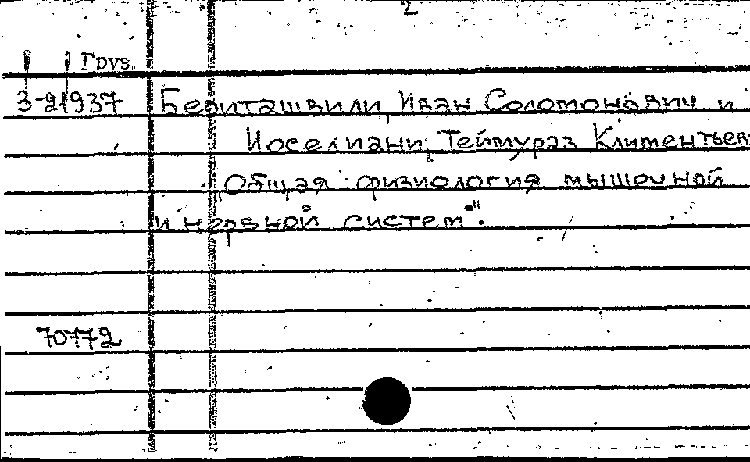 2
Груз.
3-21937 Бериташвили, Иван Соломонович и
Иоселиани, Теймураз Климентьев
"Общая физиология мышечной
и нервной систем".
70772